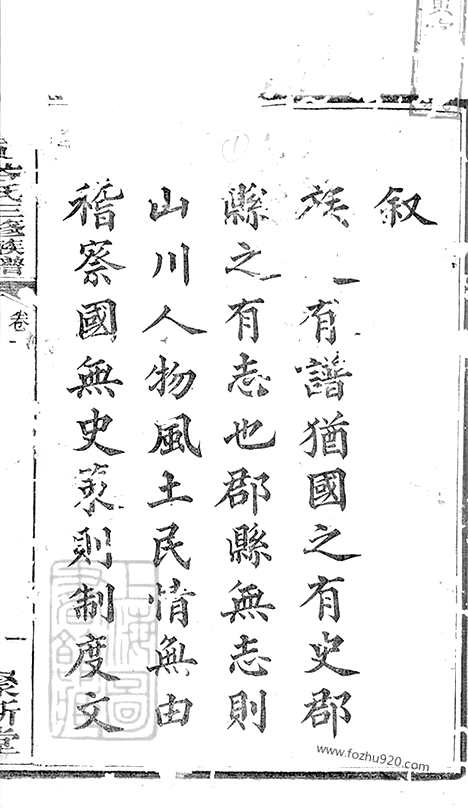 叙
族 有譜猶國之有史郡
縣之有志也郡縣無志則
山川人物風土民情無由
稽察國無史策則制度文
氏三修族譜
卷一
一
上海圖書館藏
www.fozhu920.com